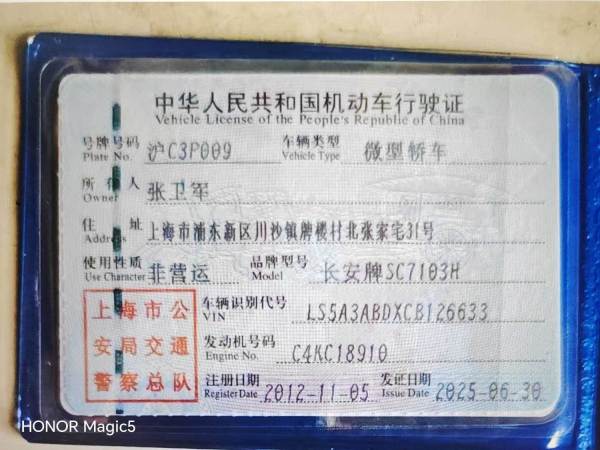 中华人民共和国机动车行驶证
Vehicle License of the People's Republic of China
号牌号码 沪C3P009 车辆类型 微型轿车
Plate No. Vehicle Type
所有人 张卫军
Owner
住址 上海市浦东新区川沙镇牌楼村北张家宅31号
Address
使用性质 非营运 品牌型号 长安牌SC7103H
Use Character Model
上海市公安局交通警察总队
车辆识别代号 LS5A3ABDXCB126633
VIN
发动机号码 C4KC18910
Engine No.
注册日期 2012-11-05 发证日期 2025-06-30
Register Date Issue Date
HONOR Magic5